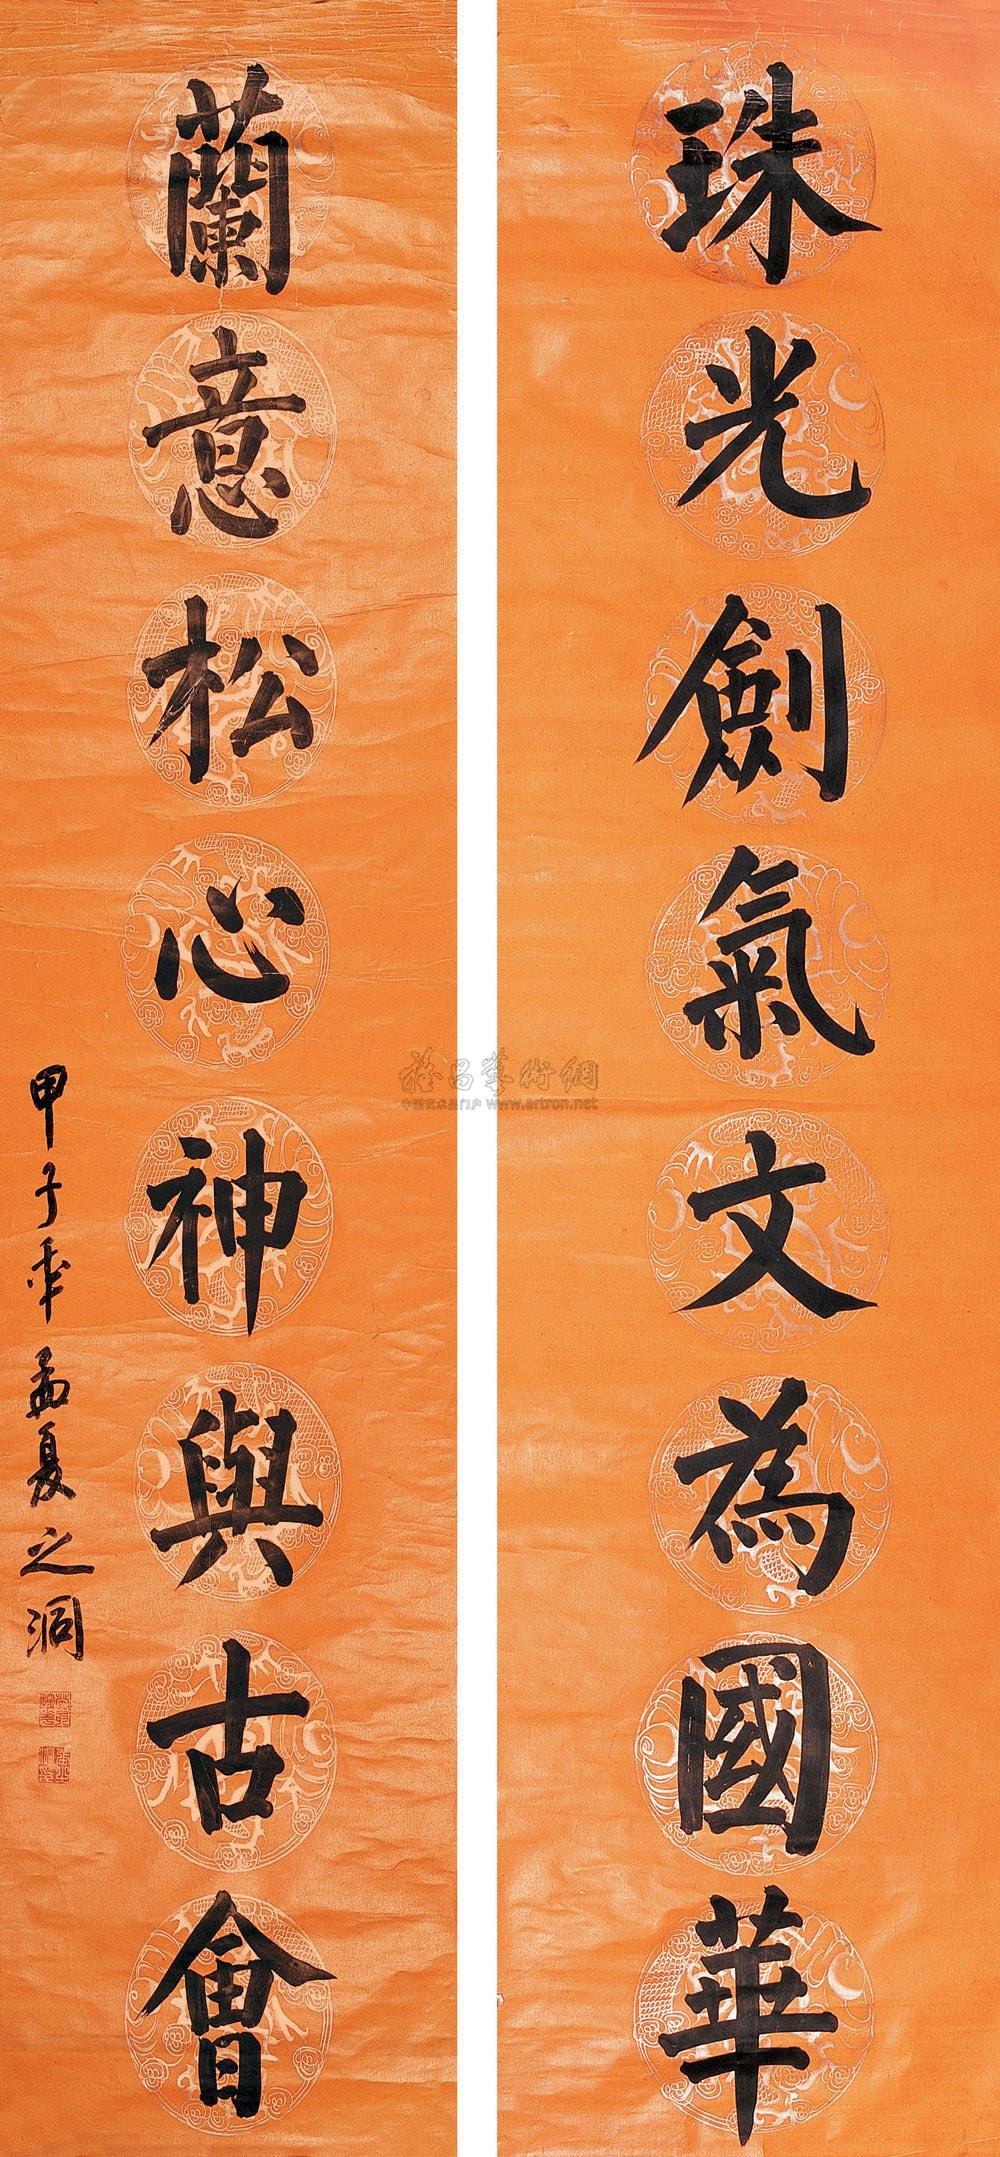 珠光劍氣文為國華
蘭意松心神與古會
甲子年孟夏之洞
www.artron.net